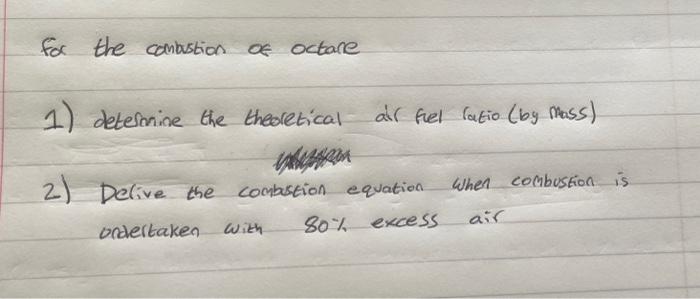 for the combustion of octane
1) determine the theoretical air fuel ratio (by mass)
2) Derive the combustion equation when combustion is
undertaken with 80% excess air